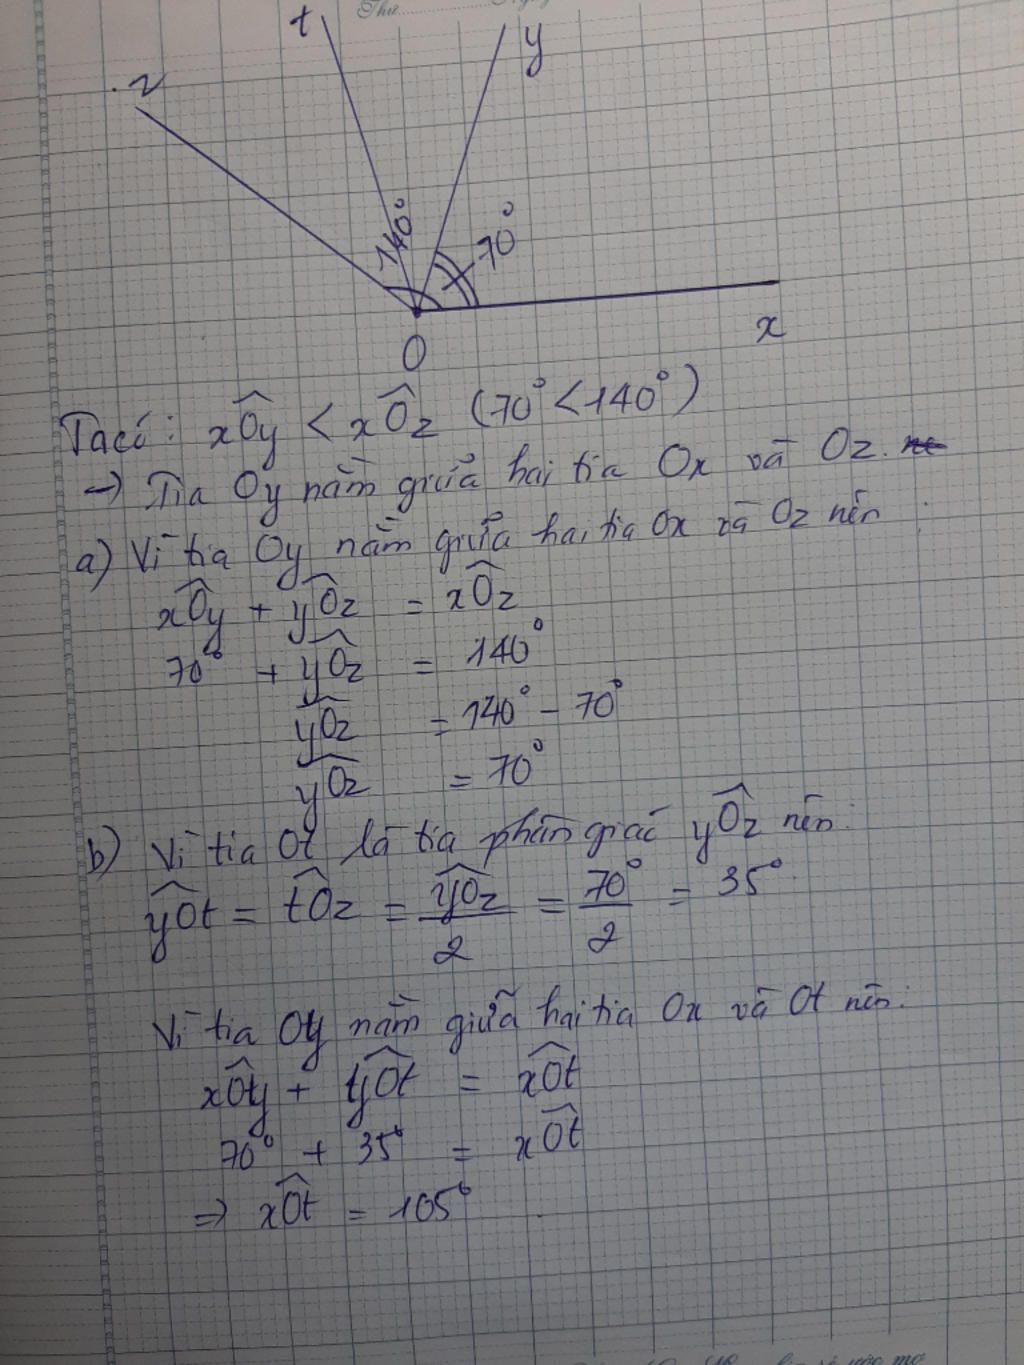 Thứ
t
y
z
140°
70°
x
O
Ta có: xOy < xOz (70° < 140°)
→ Tia Oy nằm giữa hai tia Ox và Oz.
a) Vì tia Oy nằm giữa hai tia Ox và Oz nên :
xOy + yOz = xOz
70° + yOz = 140°
yOz = 140° - 70°
yOz = 70°
b) Vì tia Ot là tia phân giác yOz nên:
yOt = tOz = yOz/2 = 70°/2 = 35°
Vì tia Oy nằm giữa hai tia Ox và Ot nên:
xOy + yOt = xOt
70° + 35° = xOt
=> xOt = 105°